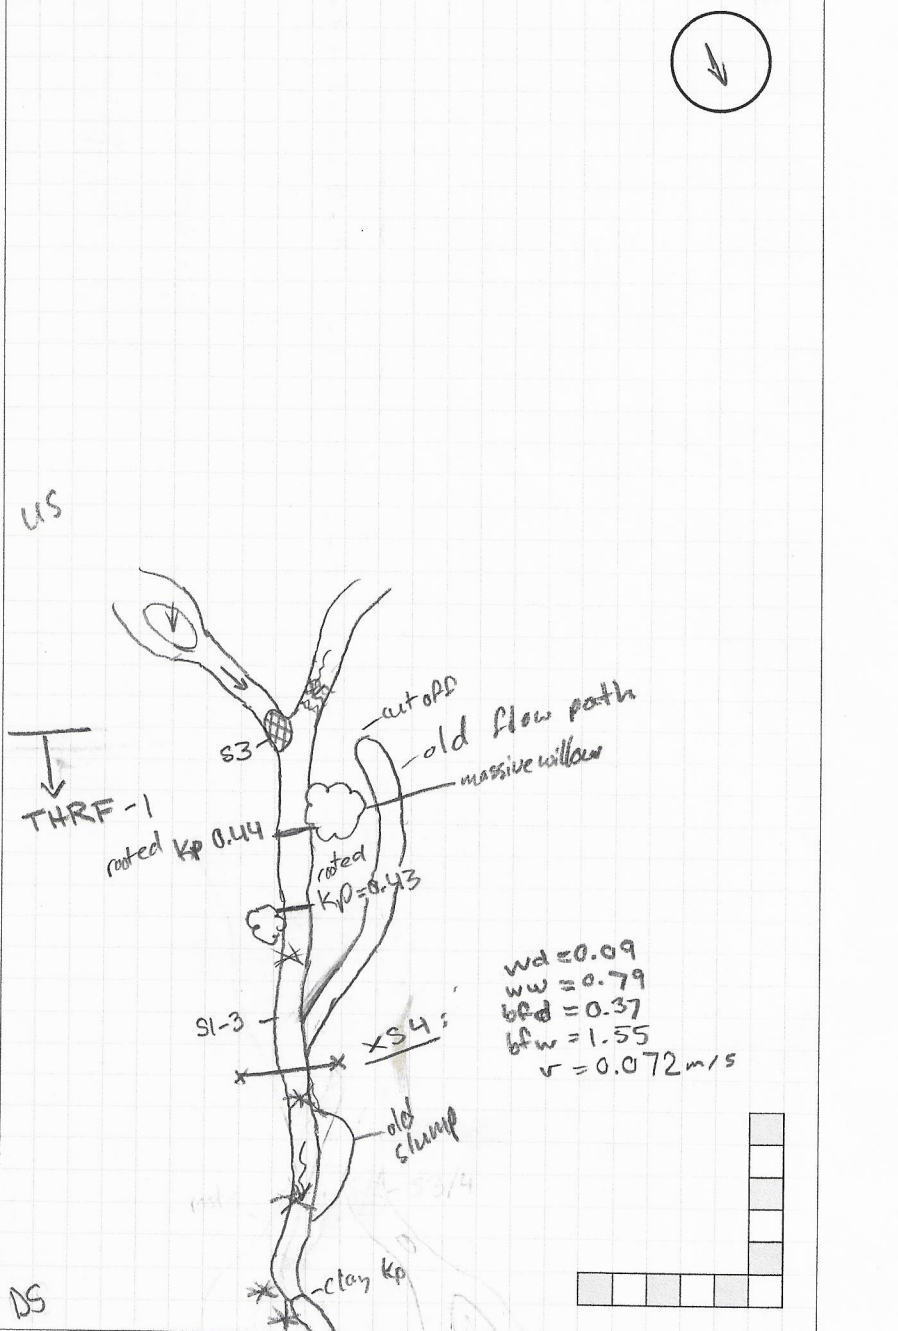 US
cutoff
old flow path
S3
massive willow
THRF-1
rooted Kp 0.44
rooted
Kp=0.43
wd=0.09
ww=0.79
bfd=0.37
bfw=1.55
v=0.072m/s
S1-3
XS4:
old
slump
clay Kp
DS